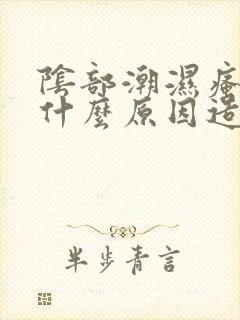 陰部潮濕
什麼原因造
半步青言